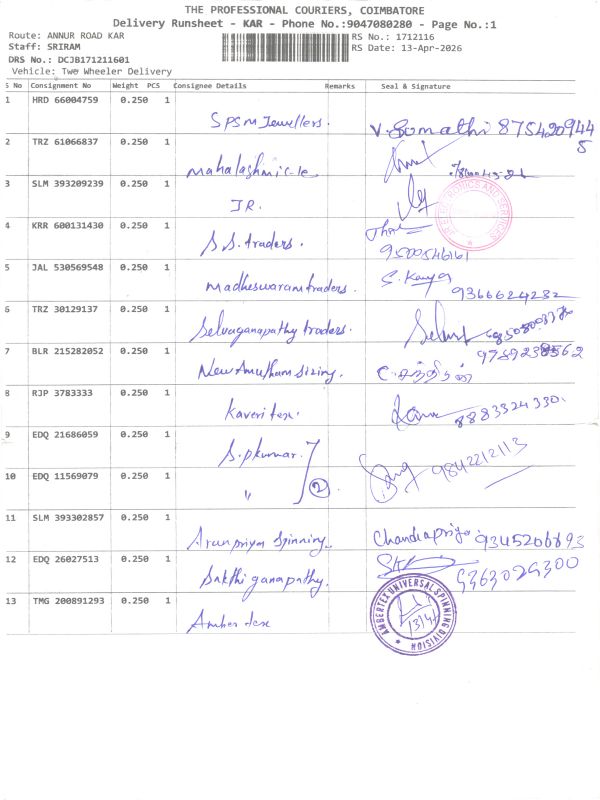 THE PROFESSIONAL COURIERS, COIMBATORE
Delivery Runsheet - KAR - Phone No.:9047080280 - Page No.:1
Route: ANNUR ROAD KAR
RS No.: 1712116
Staff: SRIRAM
RS Date: 13-Apr-2026
DRS No.: DCJB171211601
Vehicle: Two Wheeler Delivery
S No Consignment No Weight PCS Consignee Details Remarks Seal & Signature
1 HRD 66004759 0.250 1 SPSM Jewellers. V. Gomathi 8754209445
2 TRZ 61066837 0.250 1 Mahalakshmi c-le
3 SLM 393209239 0.250 1 JR.
4 KRR 600131430 0.250 1 S.S. traders. 9500546161
5 JAL 530569548 0.250 1 Madheswaram traders. S. Kanya 9366624232
6 TRZ 30129137 0.250 1 Selvaganapathy traders.
7 BLR 215282052 0.250 1 New Amutham sizing.
8 RJP 3783333 0.250 1 Kaveri tex. 8883324330.
9 EDQ 21686059 0.250 1 S.P kumar. 9842212113
10 EDQ 11569079 0.250 1 " 2
11 SLM 393302857 0.250 1 Arunpriya Spinning. Chandrapriya 9345206893
12 EDQ 26027513 0.250 1 Sakthi ganapathy. 9363029300
13 TMG 200891293 0.250 1 Amber tex
AMBERTEX UNIVERSAL SPINNING DIVISION
13/4